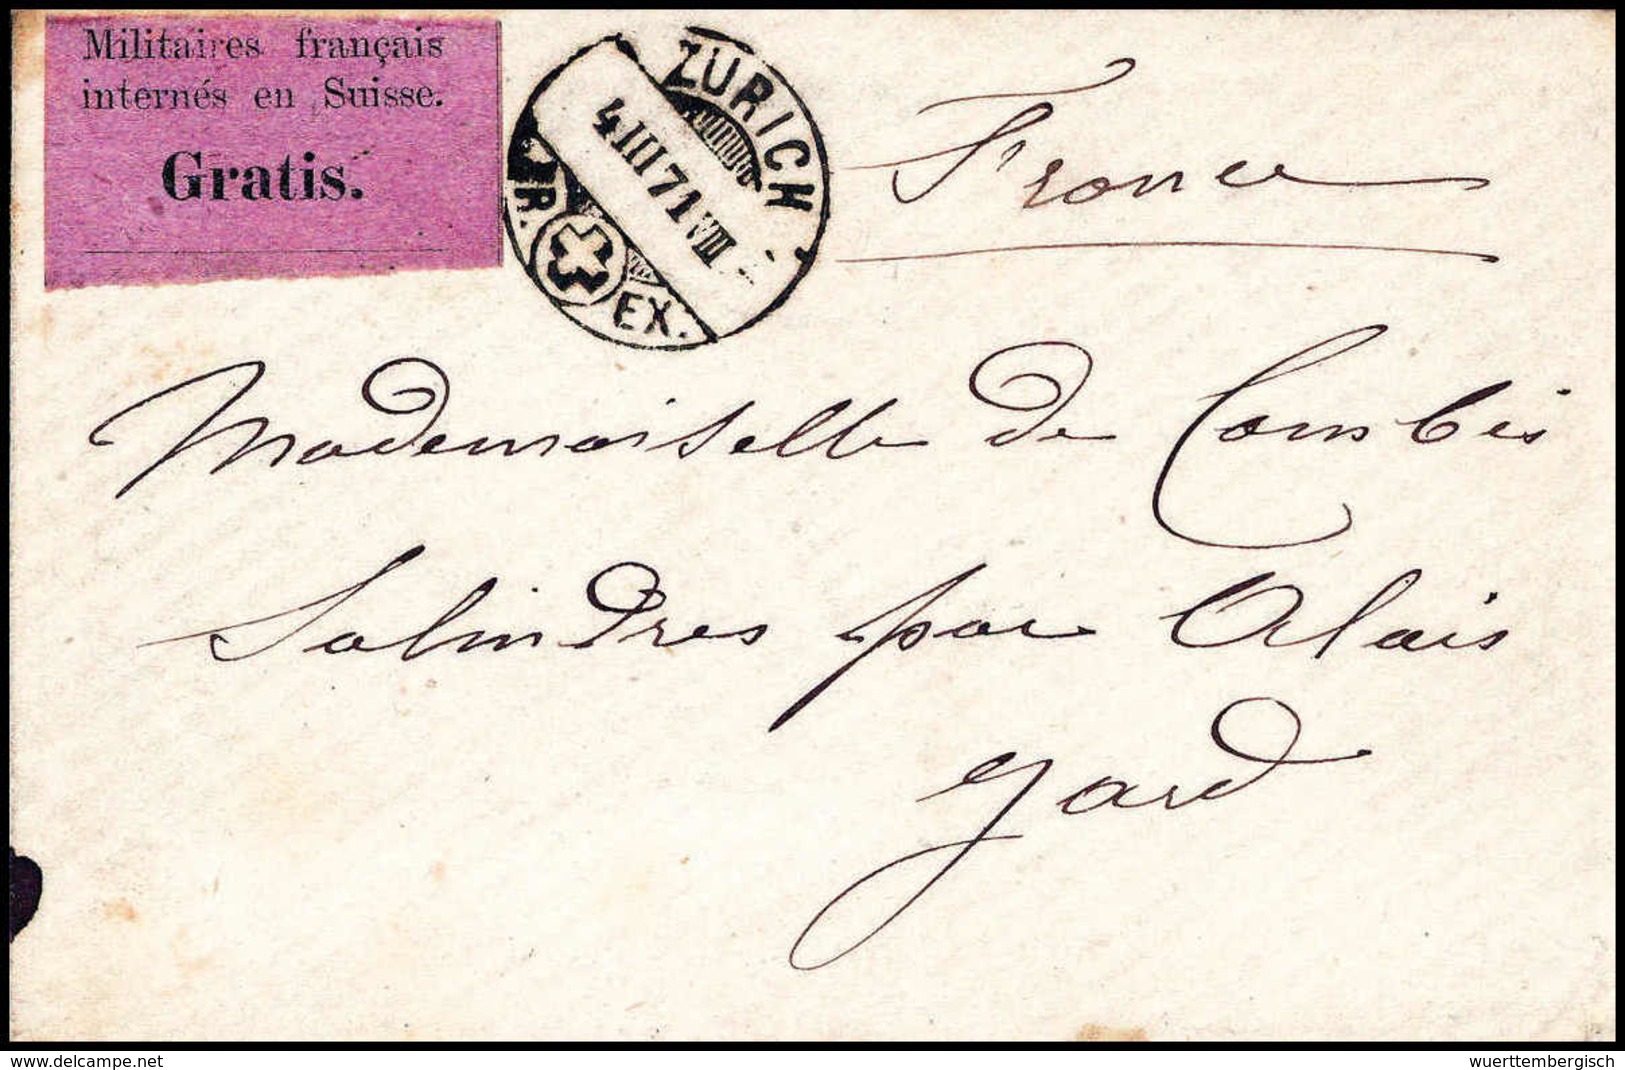 Militaires français
internés en Suisse.
Gratis.
ZÜRICH
4 III 71 VIII
BR. EX.
France
Mademoiselle de Combis
Salindres par Alais
Gard
www.delcampe.net
wuerttembergisch